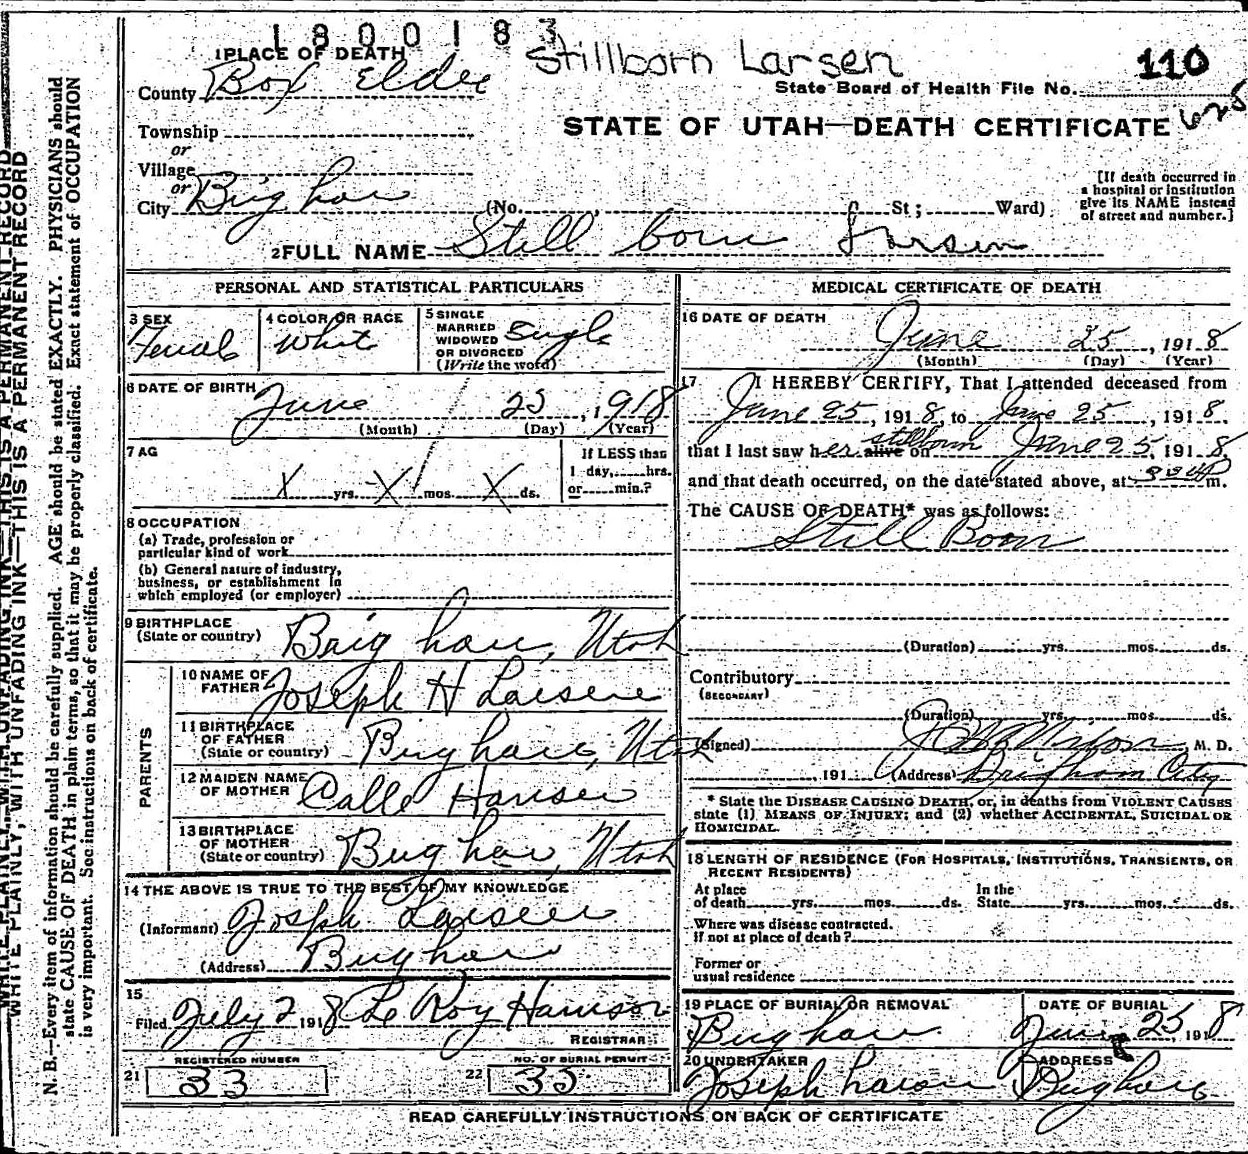 1800183
Stillborn Larsen
110
1 PLACE OF DEATH
County Box Elder
State Board of Health File No.
625
Township
or
STATE OF UTAH—DEATH CERTIFICATE
Village
or
City Brigham (No. , St ; Ward)
[If death occurred in
a hospital or institution
give its NAME instead
of street and number.]
2 FULL NAME Still born Larsen
PERSONAL AND STATISTICAL PARTICULARS
3 SEX
Female
4 COLOR OR RACE
White
5 SINGLE
MARRIED
WIDOWED
OR DIVORCED
(Write the word)
Single
6 DATE OF BIRTH
June 25, 1918
(Month) (Day) (Year)
7 AG
X yrs. X mos. X ds.
If LESS than
1 day, hrs.
or min.?
8 OCCUPATION
(a) Trade, profession or
particular kind of work
(b) General nature of industry,
business, or establishment in
which employed (or employer)
9 BIRTHPLACE
(State or country) Brigham, Utah
PARENTS
10 NAME OF
FATHER Joseph H Larsen
11 BIRTHPLACE
OF FATHER
(State or country) Brigham, Utah
12 MAIDEN NAME
OF MOTHER Calle Hansen
13 BIRTHPLACE
OF MOTHER
(State or country) Brigham, Utah
14 THE ABOVE IS TRUE TO THE BEST OF MY KNOWLEDGE
(Informant) Joseph Larsen
(Address) Brigham
15
Filed July 2 1918 Le Roy Harrison
REGISTRAR
REGISTERED NUMBER
21 33
NO. OF BURIAL PERMIT
22 35
MEDICAL CERTIFICATE OF DEATH
16 DATE OF DEATH
June 25, 1918
(Month) (Day) (Year)
17 I HEREBY CERTIFY, That I attended deceased from
June 25, 1918, to June 25, 1918.
that I last saw her alive stillborn on June 25, 1918,
and that death occurred, on the date stated above, at m.
The CAUSE OF DEATH* was as follows:
Still Born
(Duration) yrs. mos. ds.
Contributory
(SECONDARY)
(Duration) yrs. mos. ds.
(Signed) M. D.
, 191 (Address) Brigham City
* State the DISEASE CAUSING DEATH, or, in deaths from VIOLENT CAUSES
state (1) MEANS OF INJURY; and (2) whether ACCIDENTAL, SUICIDAL OR
HOMICIDAL.
18 LENGTH OF RESIDENCE (FOR HOSPITALS, INSTITUTIONS, TRANSIENTS, OR
RECENT RESIDENTS)
At place
of death yrs. mos. ds.
In the
State yrs. mos. ds.
Where was disease contracted.
if not at place of death?
Former or
usual residence
19 PLACE OF BURIAL OR REMOVAL
Brigham
DATE OF BURIAL
June 25, 1918
20 UNDERTAKER
Joseph Larson
ADDRESS
Brigham
READ CAREFULLY INSTRUCTIONS ON BACK OF CERTIFICATE
WRITE PLAINLY, WITH UNFADING INK—THIS IS A PERMANENT RECORD
WRITE PLAINLY, WITH UNFADING INK—THIS IS A PERMANENT RECORD
N. B.—Every item of information should be carefully supplied. AGE should be stated EXACTLY. PHYSICIANS should
state CAUSE OF DEATH in plain terms, so that it may be properly classified. Exact statement of OCCUPATION
is very important. See instructions on back of certificate.